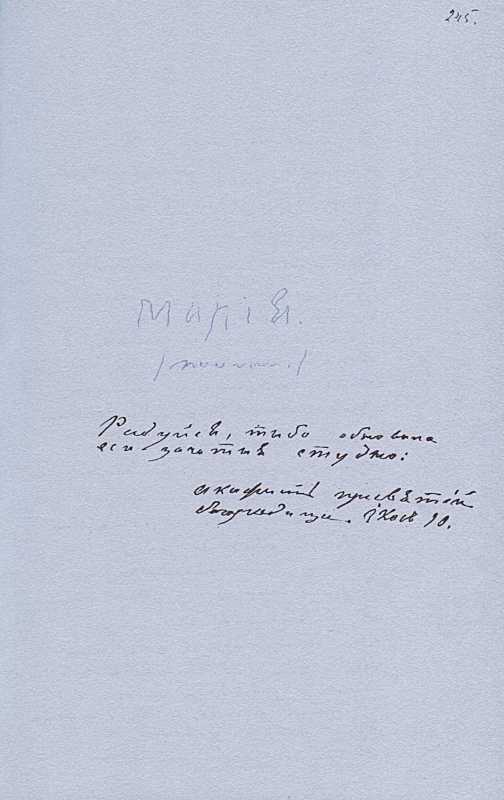 245.
Марія.
Радуйся, тыбо обновила
еси зачатыя студно:
акафистъ пресвѣтѣй
богородицы. Ікосъ 10.